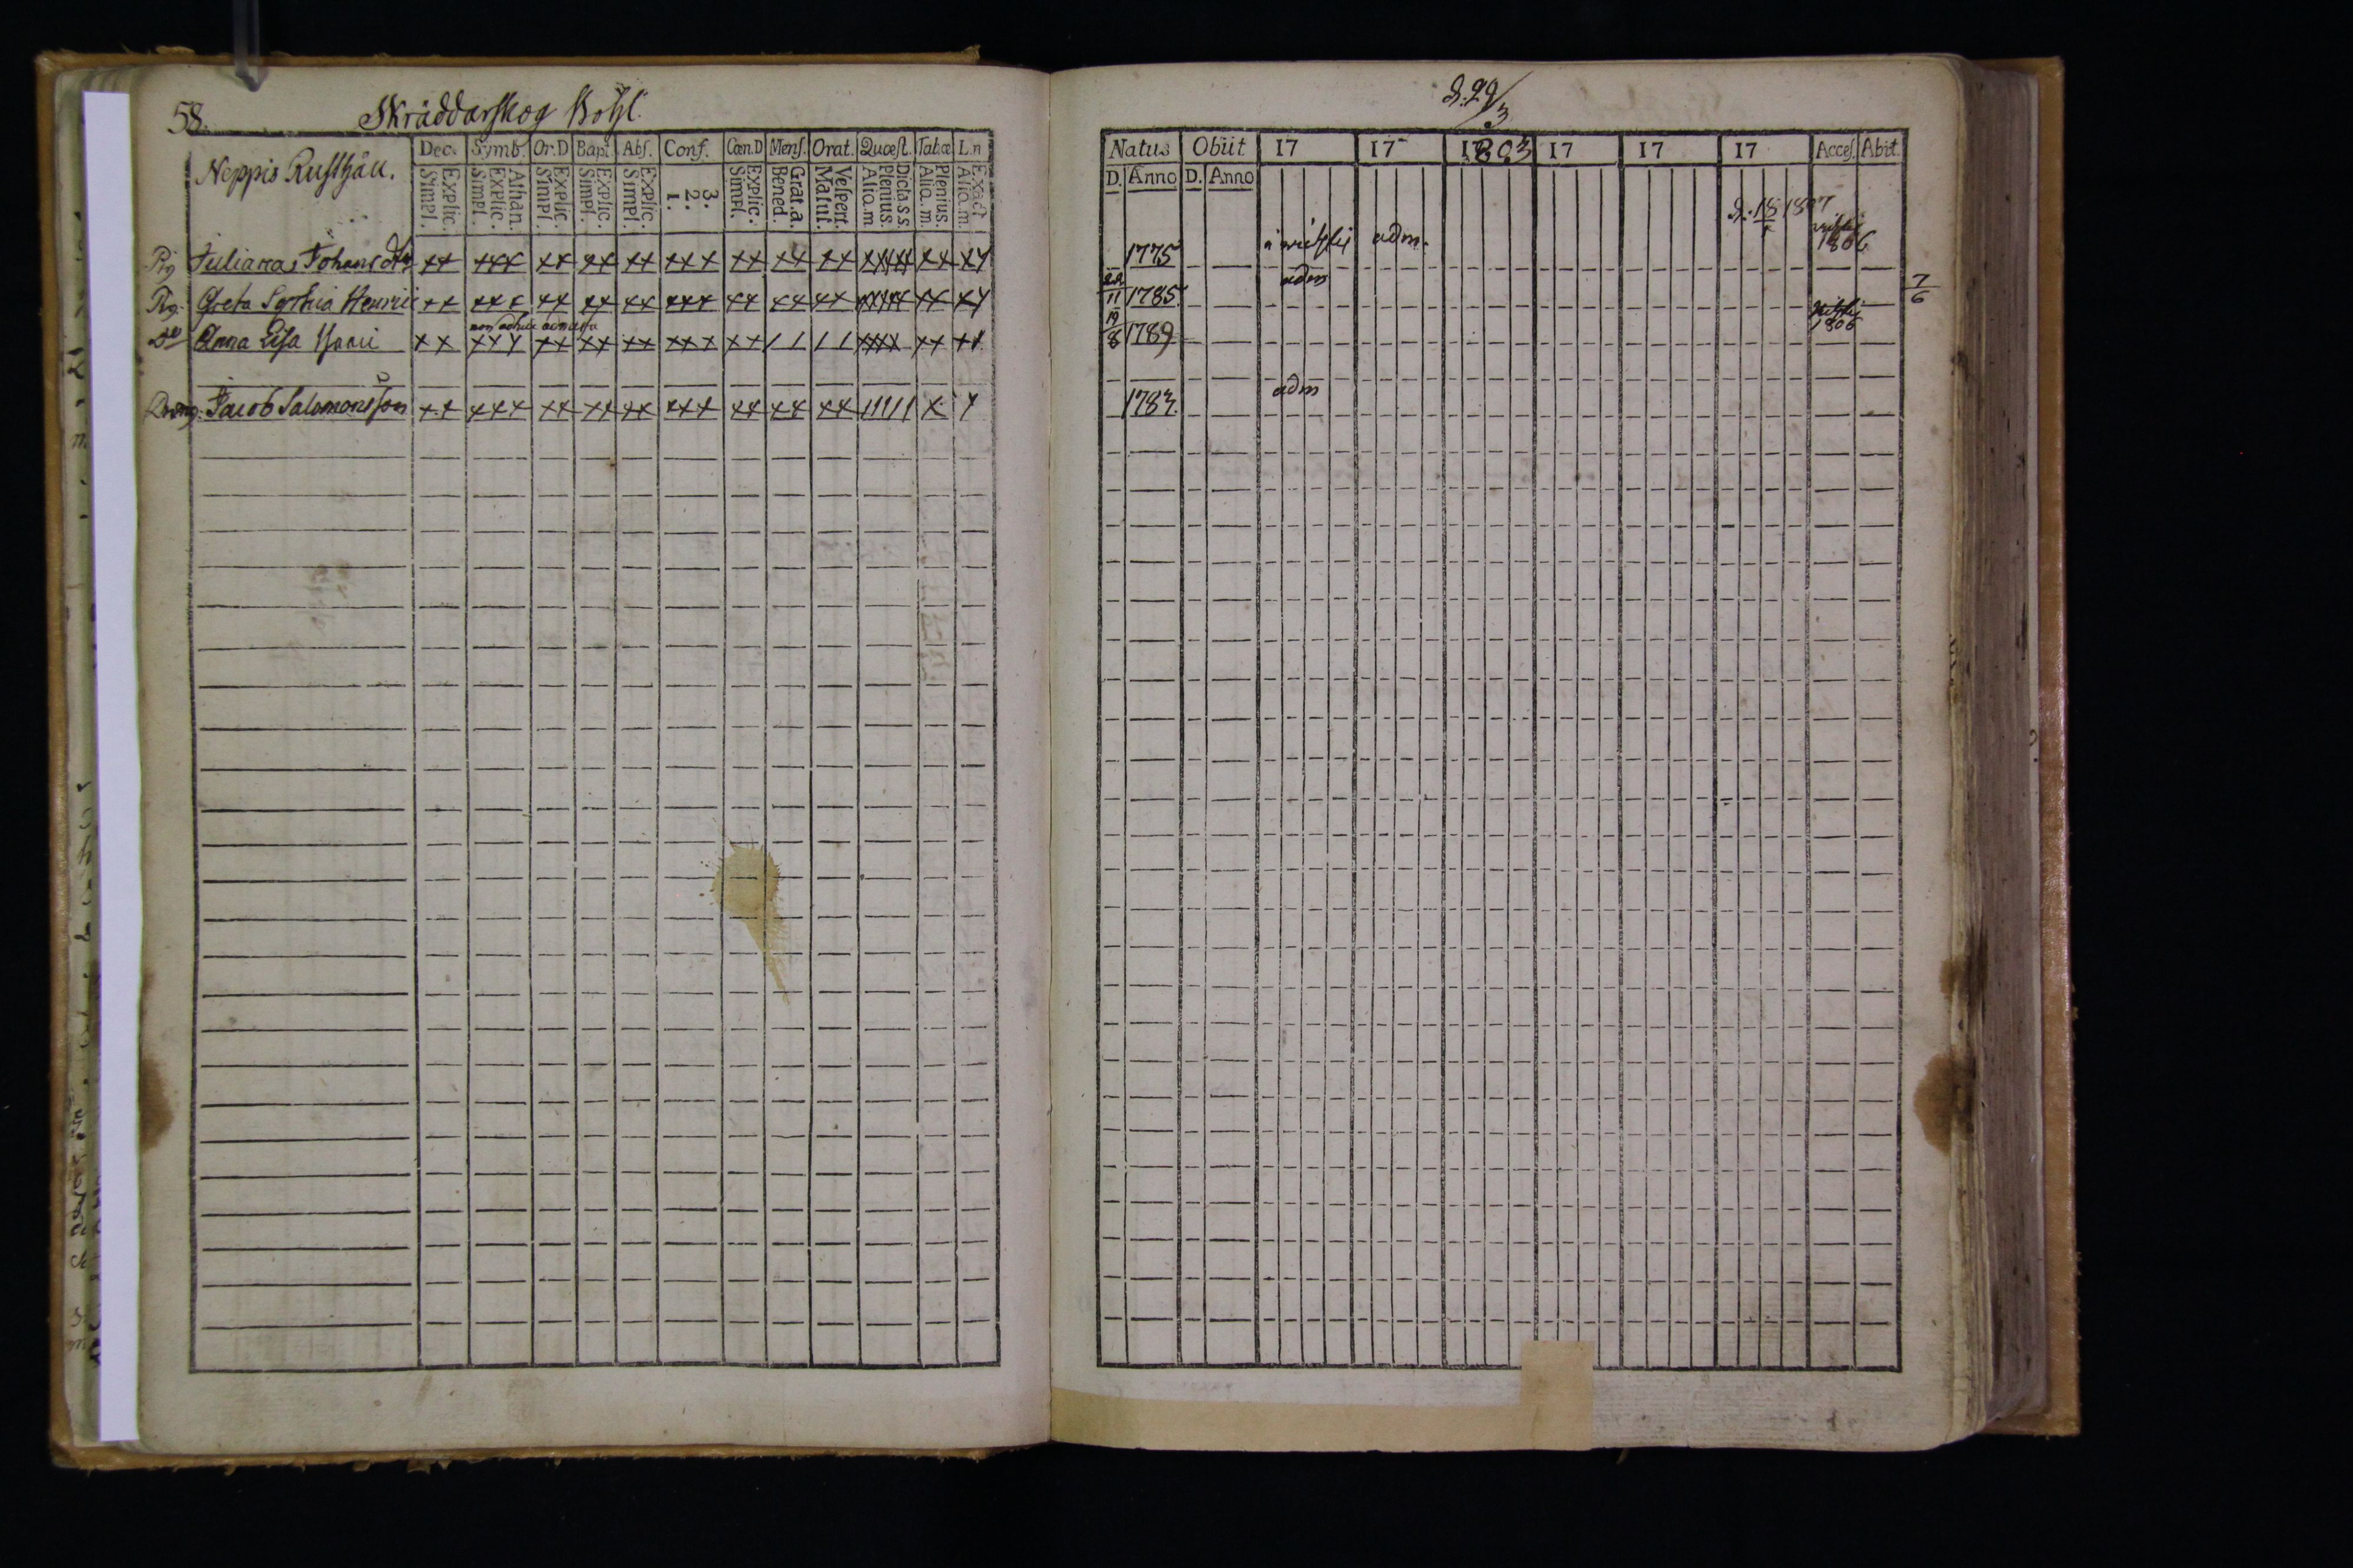 58. Skräddarskog
Neppis
Dec. Symb. Or.D Bapt. Abs. Conf. Cœn.D Mens. Orat. Quæst. Tabæ L.n
Explic. Simpl.
Athan. Explic. Simpl.
Explic. Simpl.
Explic. Simpl.
Explic. Simpl.
3. 2. 1.
Explic. Simpl.
Grat.a. Bened.
Vespert. Matut.
Dicta.s.s. Plenius. Aliq.m
Plenius. Aliq.m.
Exact Aliq.m.
Pig Juliana Johansdtr xx xxx xx xx xx xxx xx xx xx xxxxx xx xx
Pig. Greta Sophia Henrici xx xxx xx xx xx xxx xx xx xx xxxxx xx xx
non adhuc admissa
Do Anna Lisa xx xxx xx xx xx xxx xx // // xxxx xx xx
Dräng. Jacob Salomonsson xx xxx xx xx xx xxx xx xx xx ///// x
d. 29/3
Natus Obiit 17 17 1803 17 17 17 Acces. Abiit
D. Anno D. Anno
1775 adm. 1806
11 1785 adm 7/6
19/8 1789 1806
1783. adm